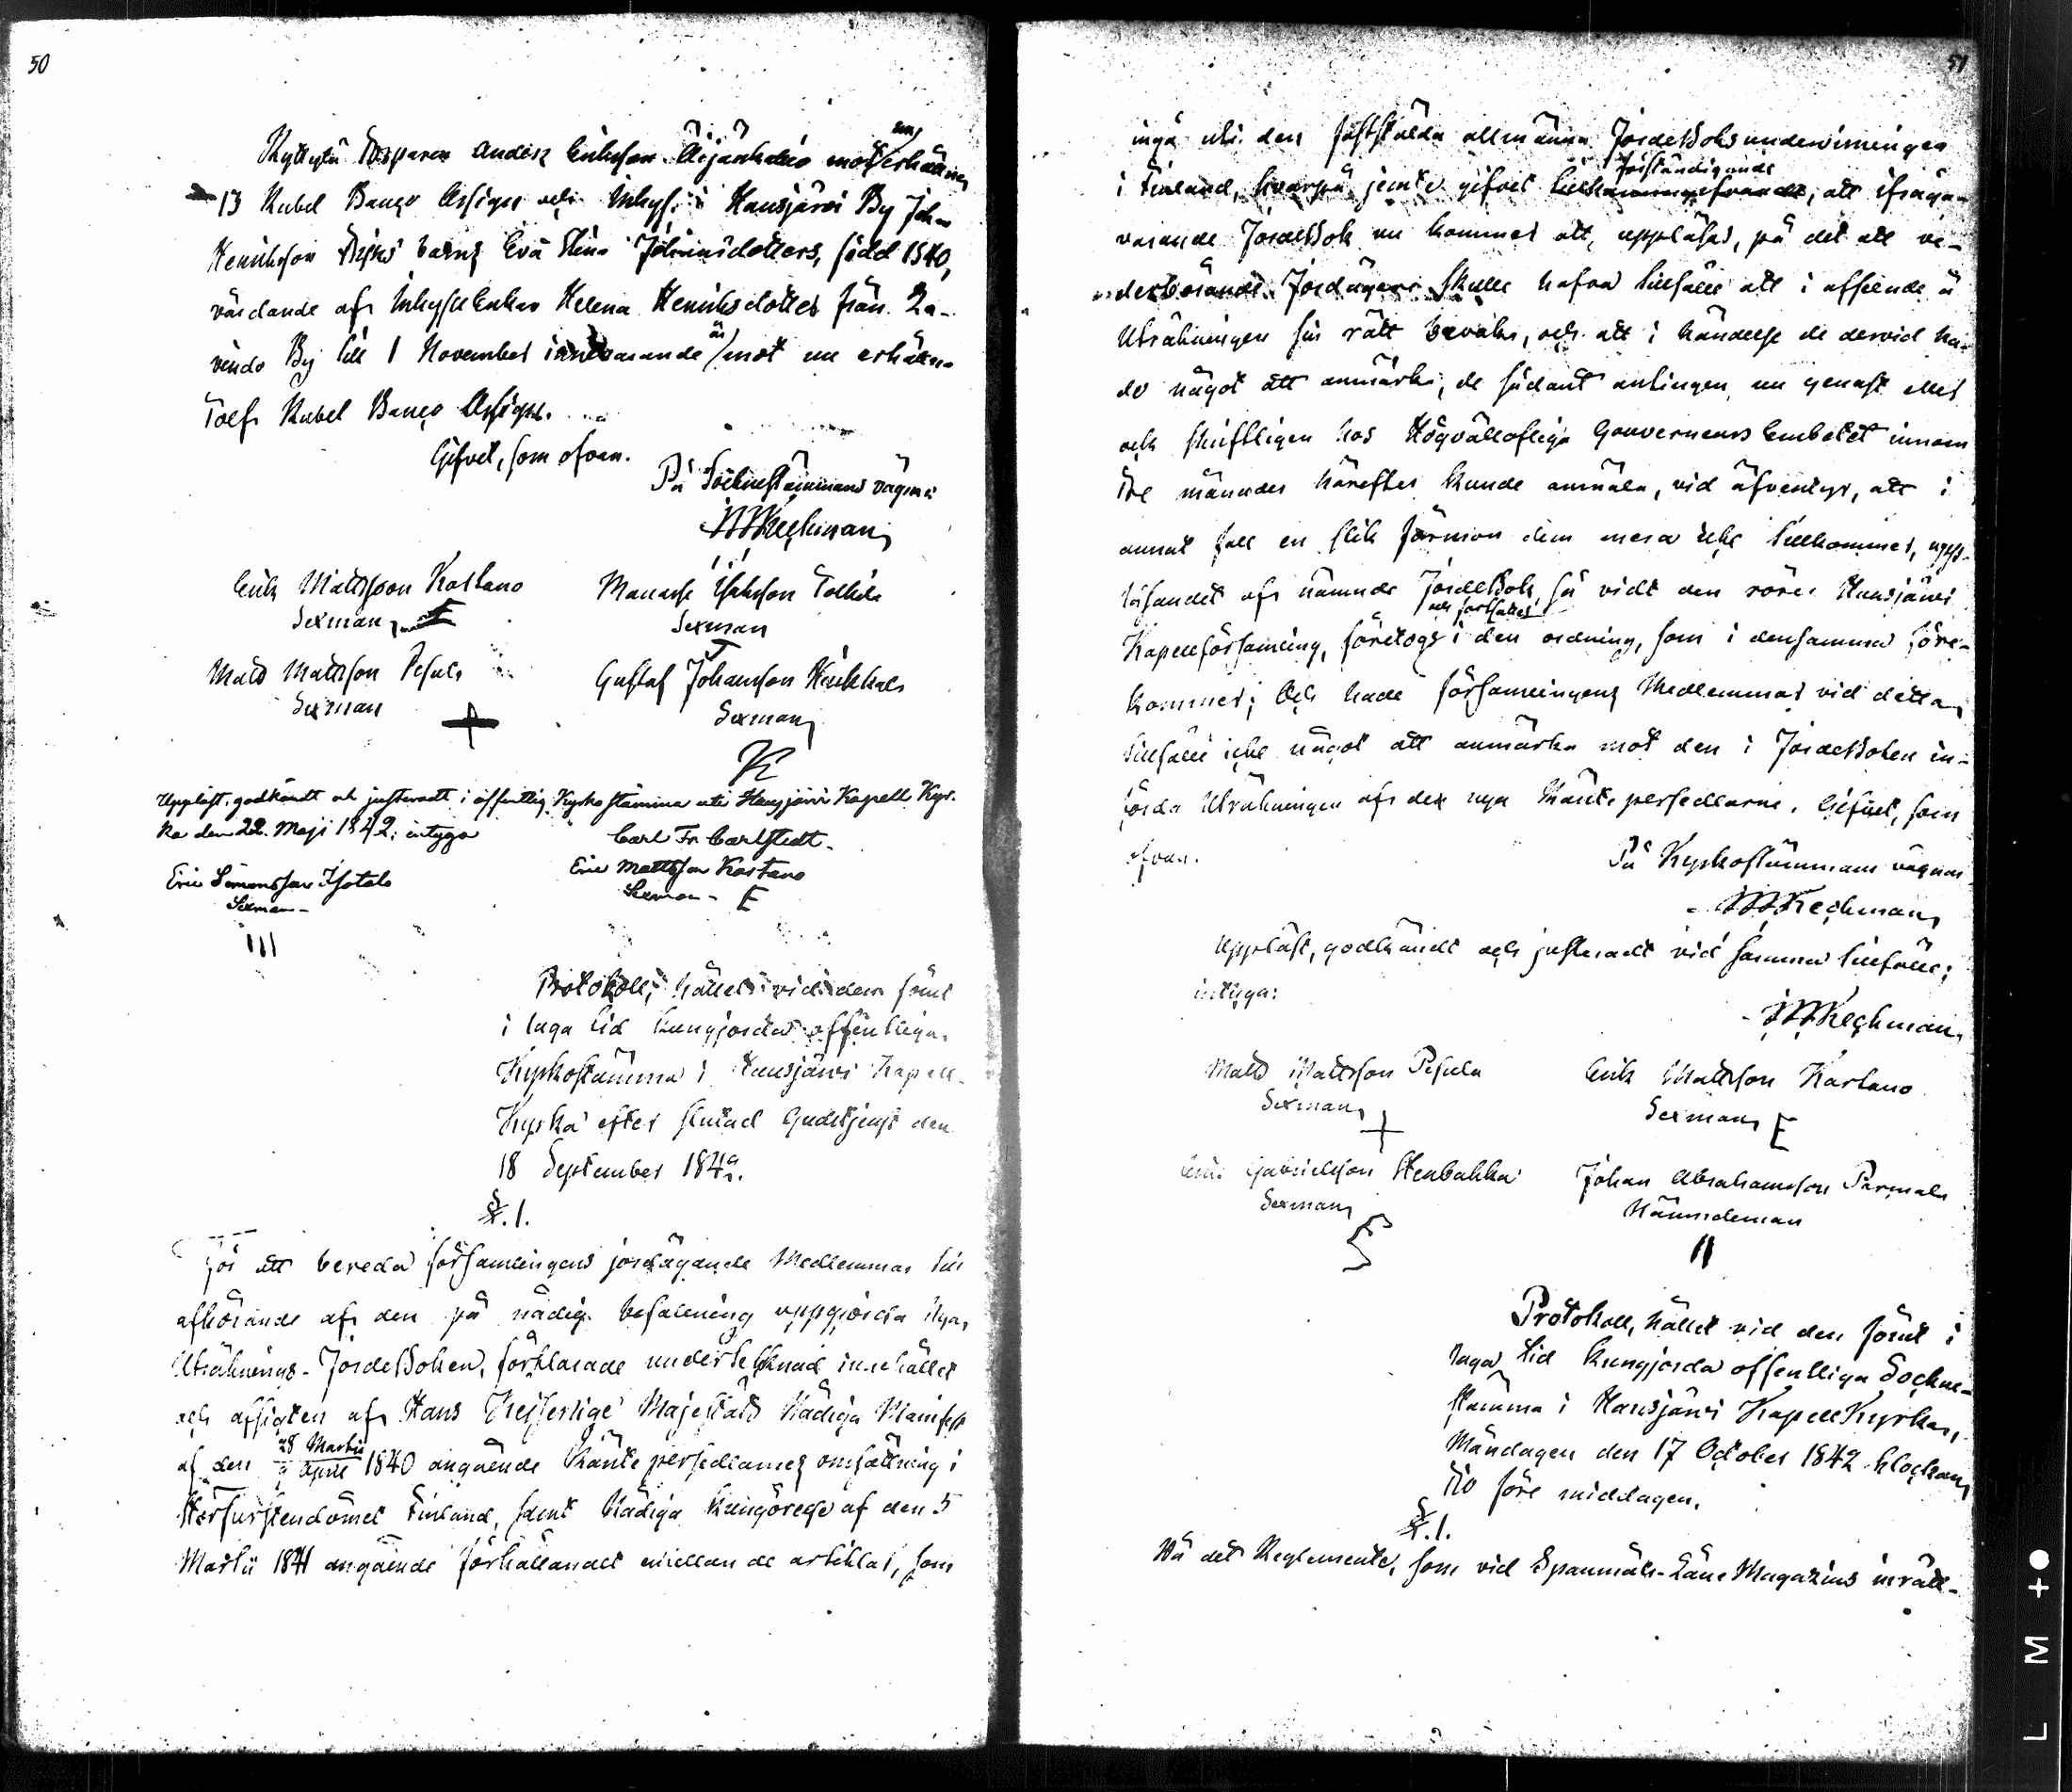 50
Kyttylä Torparen Anders Eriksson Äijänkalio mot erhållne
nu
13 Rubel Banço Assigner och Inhys. i Hausjärvi By Joh.
Henriksson barns Eva Stina Johansdotters, född 1840,
vårdande af Inhyses Enkan Helena Henriksdotter från Ra-
vindo By till 1 November innevarande år mot nu erhållna
Tolf Rubel Banço Assigner.
Gifvet, som ofvan.
På Socknestämmans vägnar
Kechman
Erik Mattsson Kastano
Sexman
Manasse Isaksson Tolkila
Sexman
Matts Mattsson Pesula
Sexman
Gustaf Johansson Kukkala
Sexman
K
Uppläst, godkändt och justeradt i offentlig Kyrko stämma uti Hausjärvi Kapell Kyr-
ka den 22. Maji 1842; intyga
Carl Fr. Carlstedt.
Eric Simonsson Isotalo
Sexman
III
Eric Mattsson Kastano
Sexman - E
Protokoll, hållet vid den förut
i laga tid kungjorda offentliga
Kyrkostämma i Hausjärvi Kapell-
Kyrka efter slutad Gudstjenst den
18 September 1842.
§. 1.
För att bereda församlingens jordägande Medlemmar till
afhörande af den på nådig befallning uppgjorda Nya
Uträknings-JordeBoken, förklarade undertecknad innehållet
och afsigten af Hans Kejserliga Majestäts Nådiga Manifest
af den 28 Martii / 9 April 1840 angående Räntepersedlarnes omsättning i
Storfurstendömet Finland, samt Nådiga Kungörelse af den 5
Martii 1841 angående förhållandet emellan de artiklar, som
51
ingå uti den fastställda allmänna JordeBoksundervisningen
i Finland, hvarpå jemte gifvet
förständigande
, att ifråga-
varande JordeBok nu kommer att uppläsas, på det att ve-
derbörande Jordägare skulle hafva tillfälle att i afseende å
Uträkningen sin rätt bevaka, och att i händelse de dervid ha-
de något att anmärka, de sådant antingen nu genast eller
och skriftligen hos Högvällofliga Gouverneurs Embetet innom
tre månader härefter kunde anmäla, vid äfventyr, att i
annat fall en slik förmon dem mera icke tillkommer, upp-
läsandet af nämnde JordeBok, så vidt den rörer Hausjärvi
och fortsattes
Kapellförsamling, företogs i den ordning, som i densamma före-
kommer; Och hade församlingens Medlemmar vid detta
tillfälle icke något att anmärka mot den i JordeBoken in-
förda Uträkningen af den nya Räntepersedlarne. Gifvet, som
ofvan.
På Kyrkostämmans vägnar
Kechman
Uppläst, godkändt och justeradt vid samma tillfälle;
intyga:
Kechman
Matts Mattsson Pesula
Sexman
Erik Mattsson Kastano
Sexman E
Erik Gabrielsson Stenbakka
Sexman
Johan Abrahamsson Parmala
Nämndeman
II
Protokoll, hållet vid den förut i
laga tid kungjorda offentliga Sockne-
stämma i Hausjärvi KapellKyrka,
Måndagen den 17 October 1842 klockan
tio före middagen.
§. 1.
På det Reglemente, som vid Spanmåls-Låne Magazins inrätt-
L M +